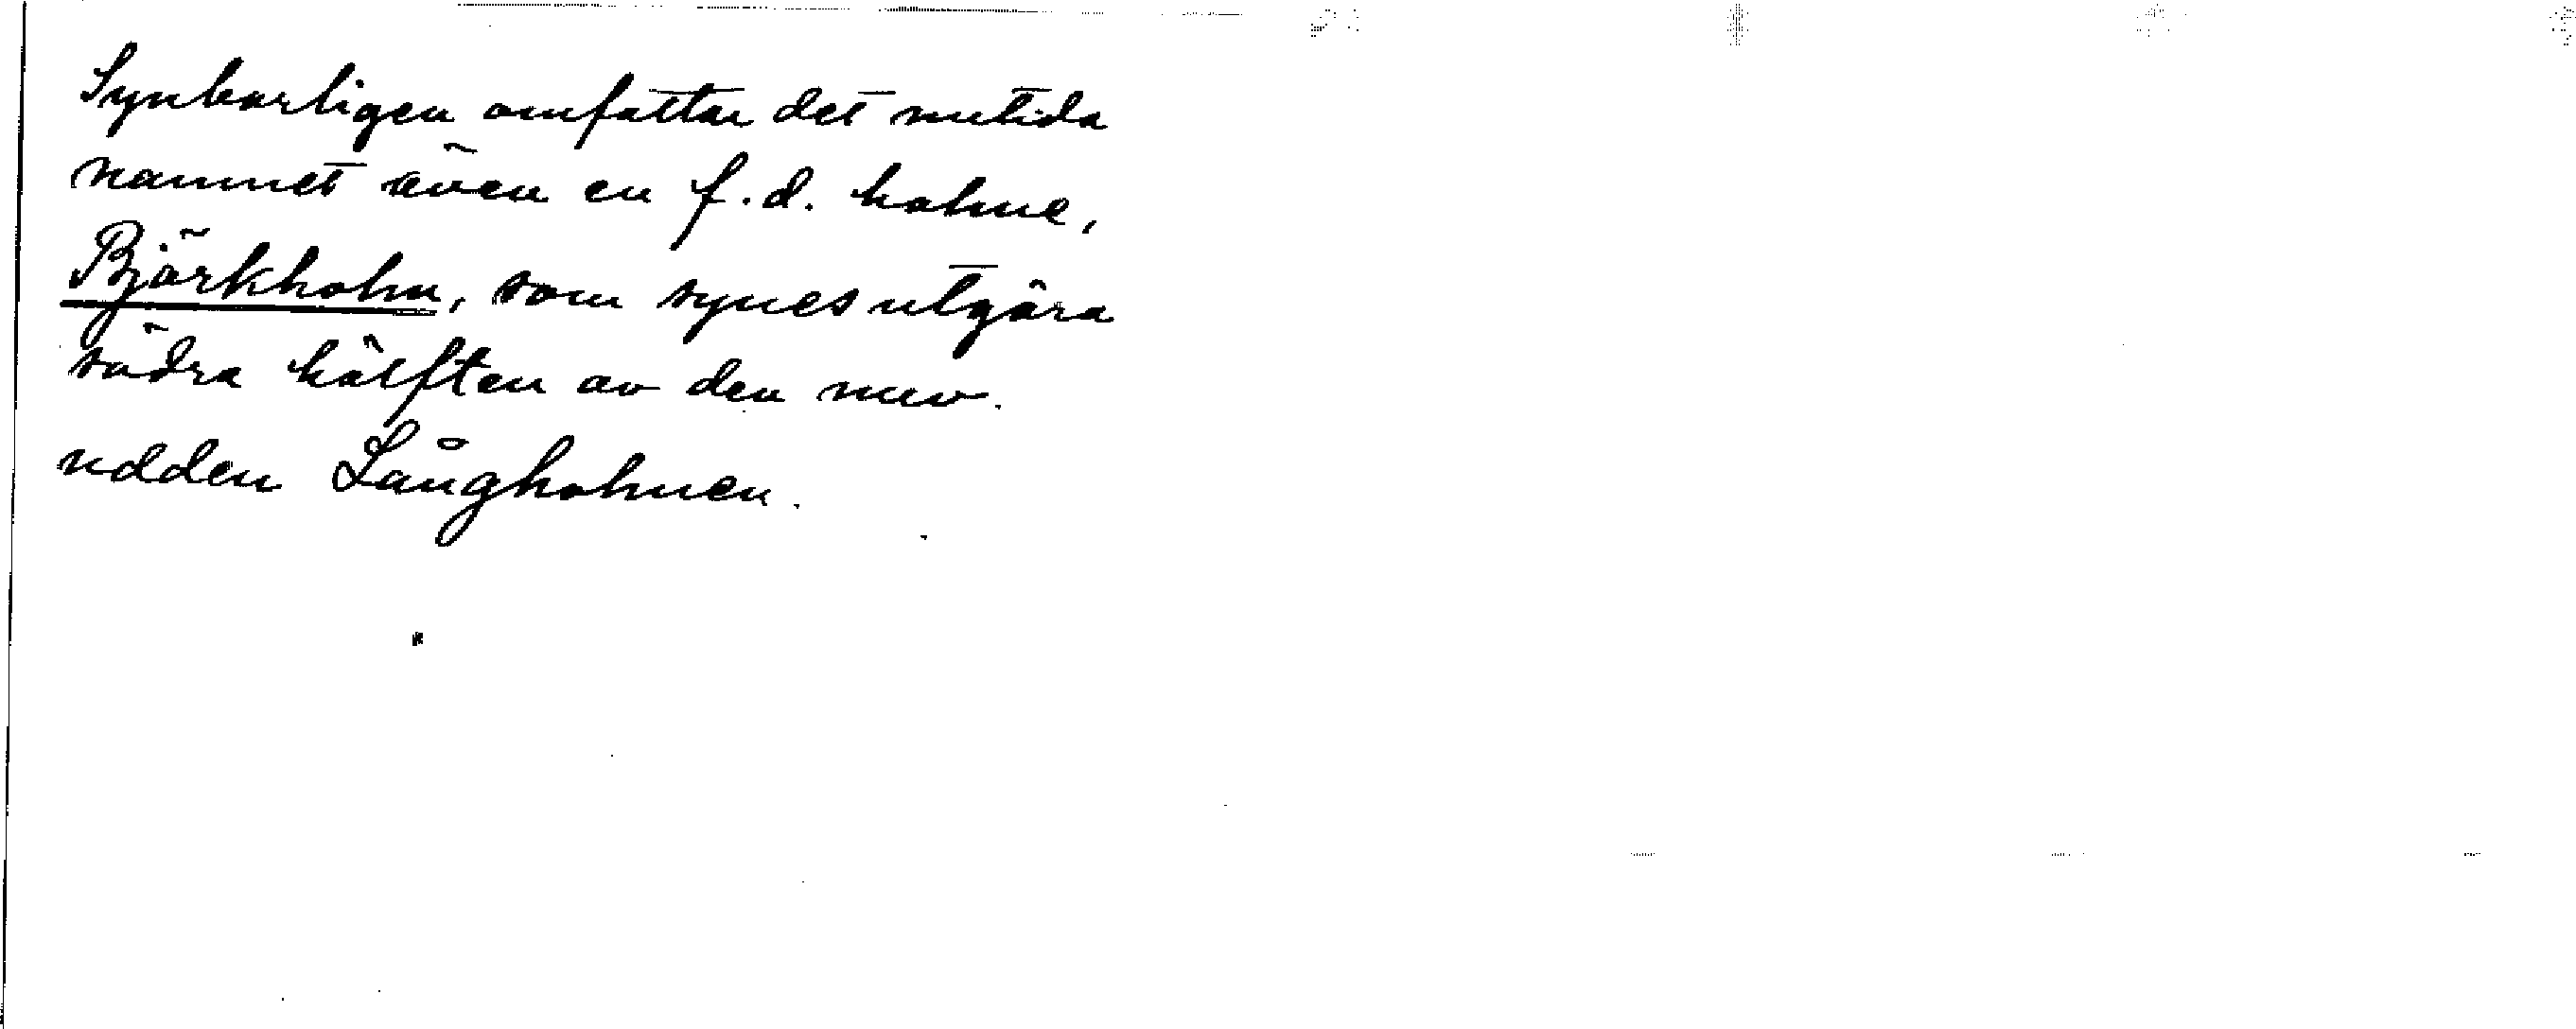 Synbarligen omfattar det nutida
namnet även en f.d. holme,
Björkholm, som synes utgöra
södra hälften av den nuv.
udden Långholmen.